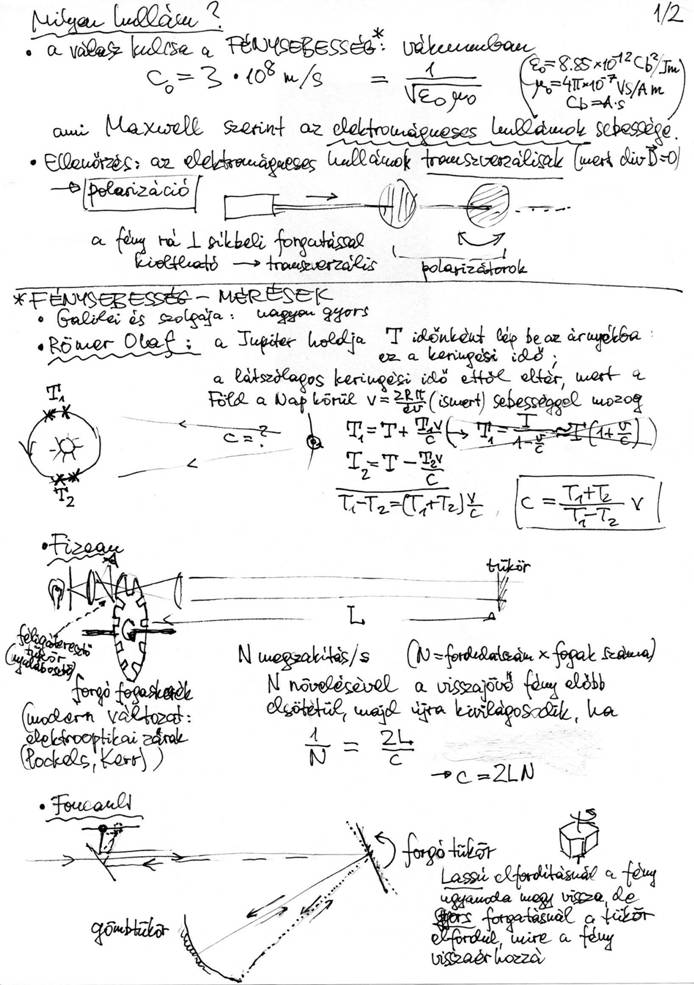 Milyen hullám?
1/2
• a válasz kulcsa a FÉNYSEBESSÉG*: vákuumban
C₀ = 3 · 10⁸ m/s = 1/√ε₀μ₀
(ε₀=8.85×10⁻¹² Cb²/Jm
μ₀=4π×10⁻⁷ Vs/Am
Cb=A·s)
ami Maxwell szerint az elektromágneses hullámok sebessége.
• Ellenőrzés: az elektromágneses hullámok transzverzálisak (mert div D=0)
→ polarizáció
a fény rá ⊥ síkbeli forgatással
kioltható → transzverzális
polarizátorok
*FÉNYSEBESSÉG – MÉRÉSEK
• Galilei és szolgája: nagyon gyors
• Römer Olaf: a Jupiter holdja T időnként lép be az árnyékba:
ez a keringési idő;
a látszólagos keringési idő ettől eltér, mert a
Föld a Nap körül v = 2Rπ/év (ismert) sebességgel mozog
T₁
T₂
c = ?
T₁ = T + T₁v/c (→ T₁ = T/(1-v/c) ≈ T(1+v/c))
T₂ = T − T₂v/c
T₁-T₂=(T₁+T₂)v/c
c = (T₁+T₂)/(T₁-T₂) v
• Fizeau
tükör
L
félig áteresztő
tükör
(nyalábosztó)
forgó fogaskerék
(modern változat:
elektrooptikai zárak
(Pockels, Kerr))
N megszakítás/s (N=fordulatszám × fogak száma)
N növelésével a visszajövő fény előbb
elsötétül, majd újra kivilágosodik, ha
1/N = 2L/c
→ c = 2LN
• Foucault
forgó tükör
gömbtükör
Lassú elfordításnál a fény
ugyanoda megy vissza, de
gyors forgatásnál a tükör
elfordul, mire a fény
visszaér hozzá